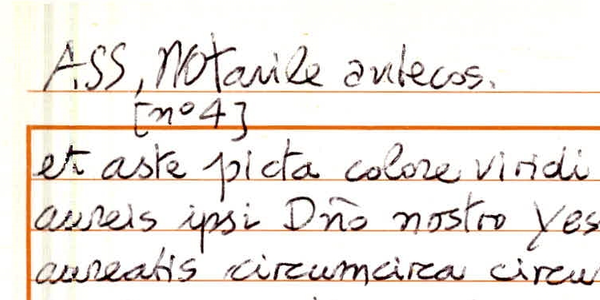 ASS, Notarile antecos.
[n° 4]
et aste picta colore viridi
aureis ipsi Dño nostro Yes
aureatis circumcirca circu